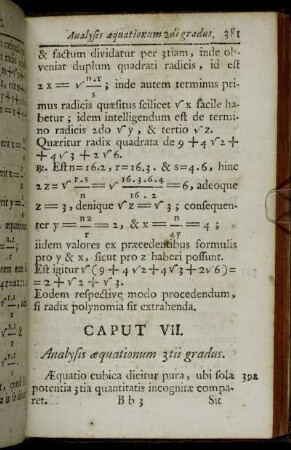 Analysis æquationum 2di gradus. 381
& factum dividatur per 3tiam, inde ob-
veniat duplum quadrati radicis, id est
2x = √ n.r/s ; inde autem terminus pri-
mus radicis quæsitus scilicet √x facile ha-
betur ; idem intelligendum est de termi-
no radicis 2do √y , & tertio √z.
Quæritur radix quadrata de 9 + 4√2 +
+ 4√3 + 2√6.
℞. Est n=16.2, r=16.3. & s=4.6, hinc
2z = √ r.s/n = √ 16.3.4.6/16.2 = 6, adeoque
z = 3, denique √z = √3 ; consequen-
ter y = nz/r = 2, & x = n/4y = 4 ;
iidem valores ex præcedentibus formulis
pro y & x, sicut pro z haberi possunt.
Est igitur √(9+4√2+4√3+2√6)=
= 2 + √2 + √3.
Eodem respective modo procedendum,
si radix polynomia sit extrahenda.
CAPUT VII.
Analysis æquationum 3tii gradus.
Æquatio cubica dicitur pura, ubi sola 392
potentia 3tia quantitatis incognitæ compa-
ret. Bb3 Sit